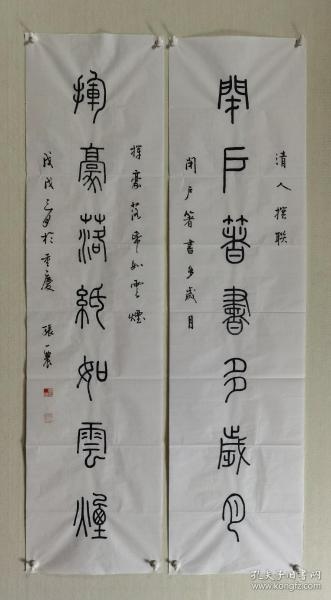 清人撰联
閉戶著書多歲月
閉戶箸書多歲月
揮豪落帋如雲煙
揮豪落紙如雲煙
戊戌三月於重慶 張一農
孔夫子旧书网